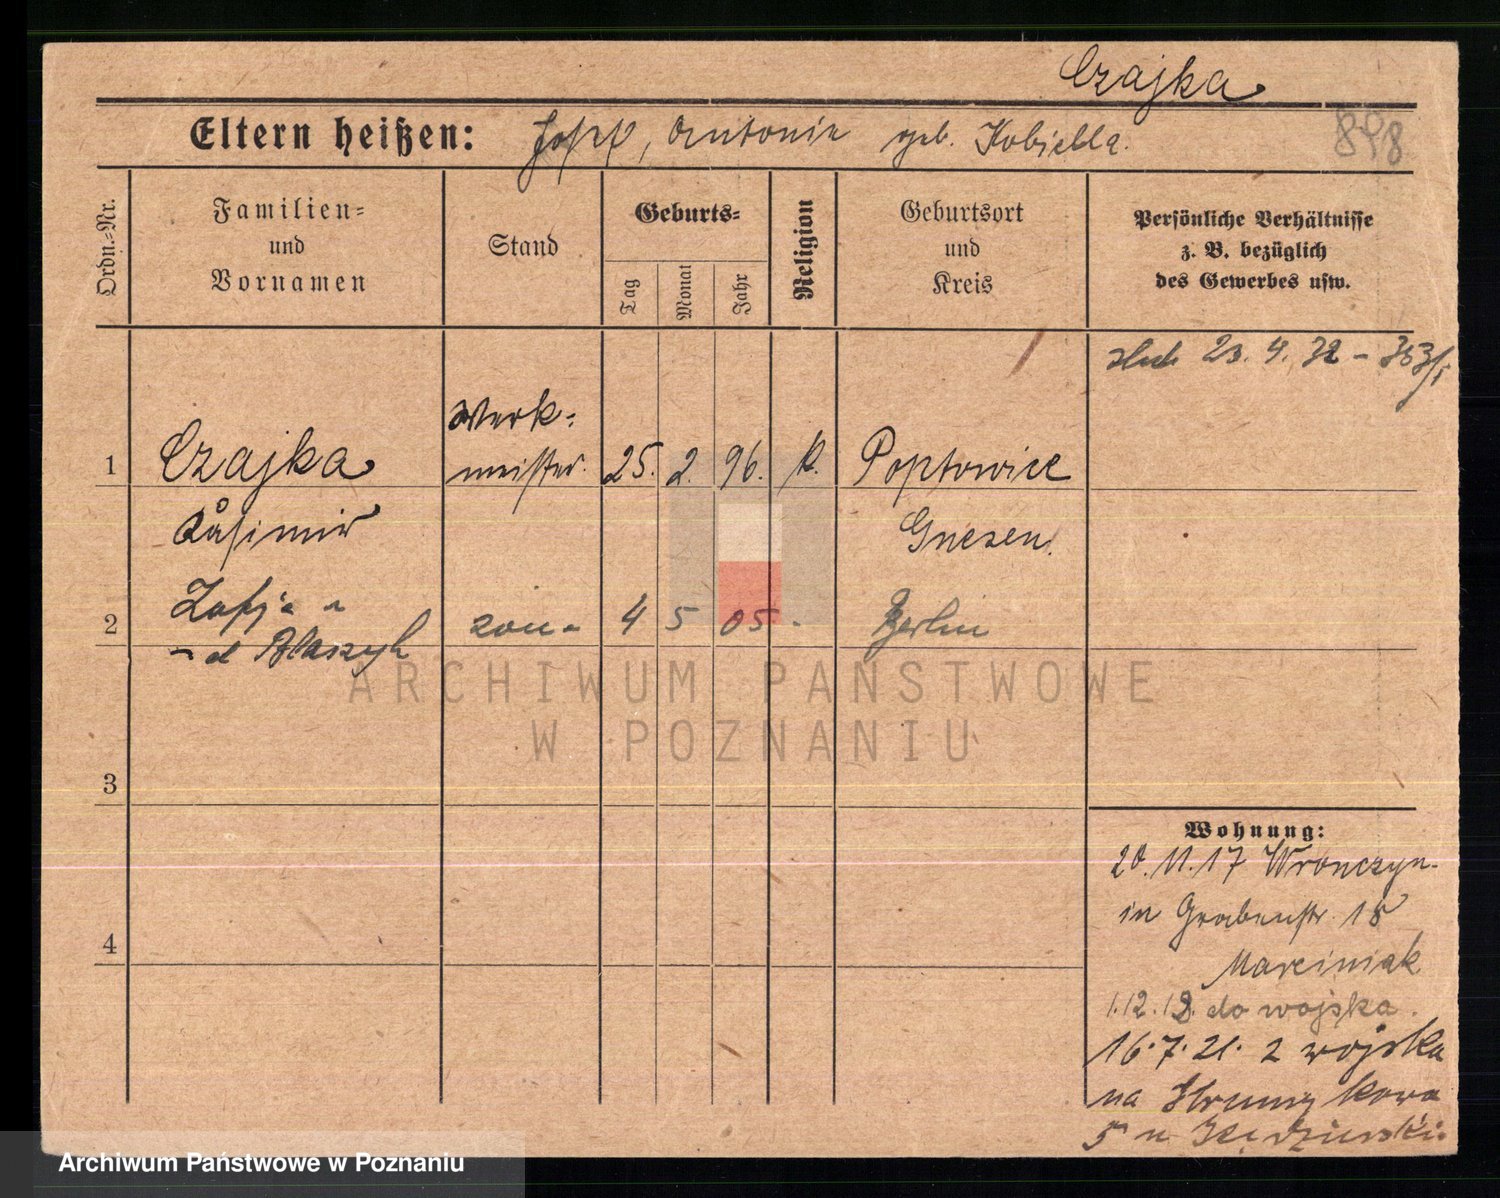 Czajka
Eltern heißen: Josef, Antonie geb. Kobiella.
898
Ordn.=Nr.
Familien=
und
Vornamen
Stand
Geburts=
Tag
Monat
Jahr
Religion
Geburtsort
und
Kreis
Persönliche Verhältnisse
z. B. bezüglich
des Gewerbes usw.
23. 4. 32 -
1 Czajka Werk=
meister. 25. 2. 96. k. Poptowice
Kasimir Gnesen.
2 Zofja
z d Błaszyk żona 4 5 05 - Berlin
3
4
Wohnung:
20. 11. 17 Wronczyn-
in Grabenstr. 18
Marciniak
1.12.18. do wojska.
16.7.21. z wojska
na Strumykowa
5 u
ARCHIWUM PAŃSTWOWE
W POZNANIU
Archiwum Państwowe w Poznaniu